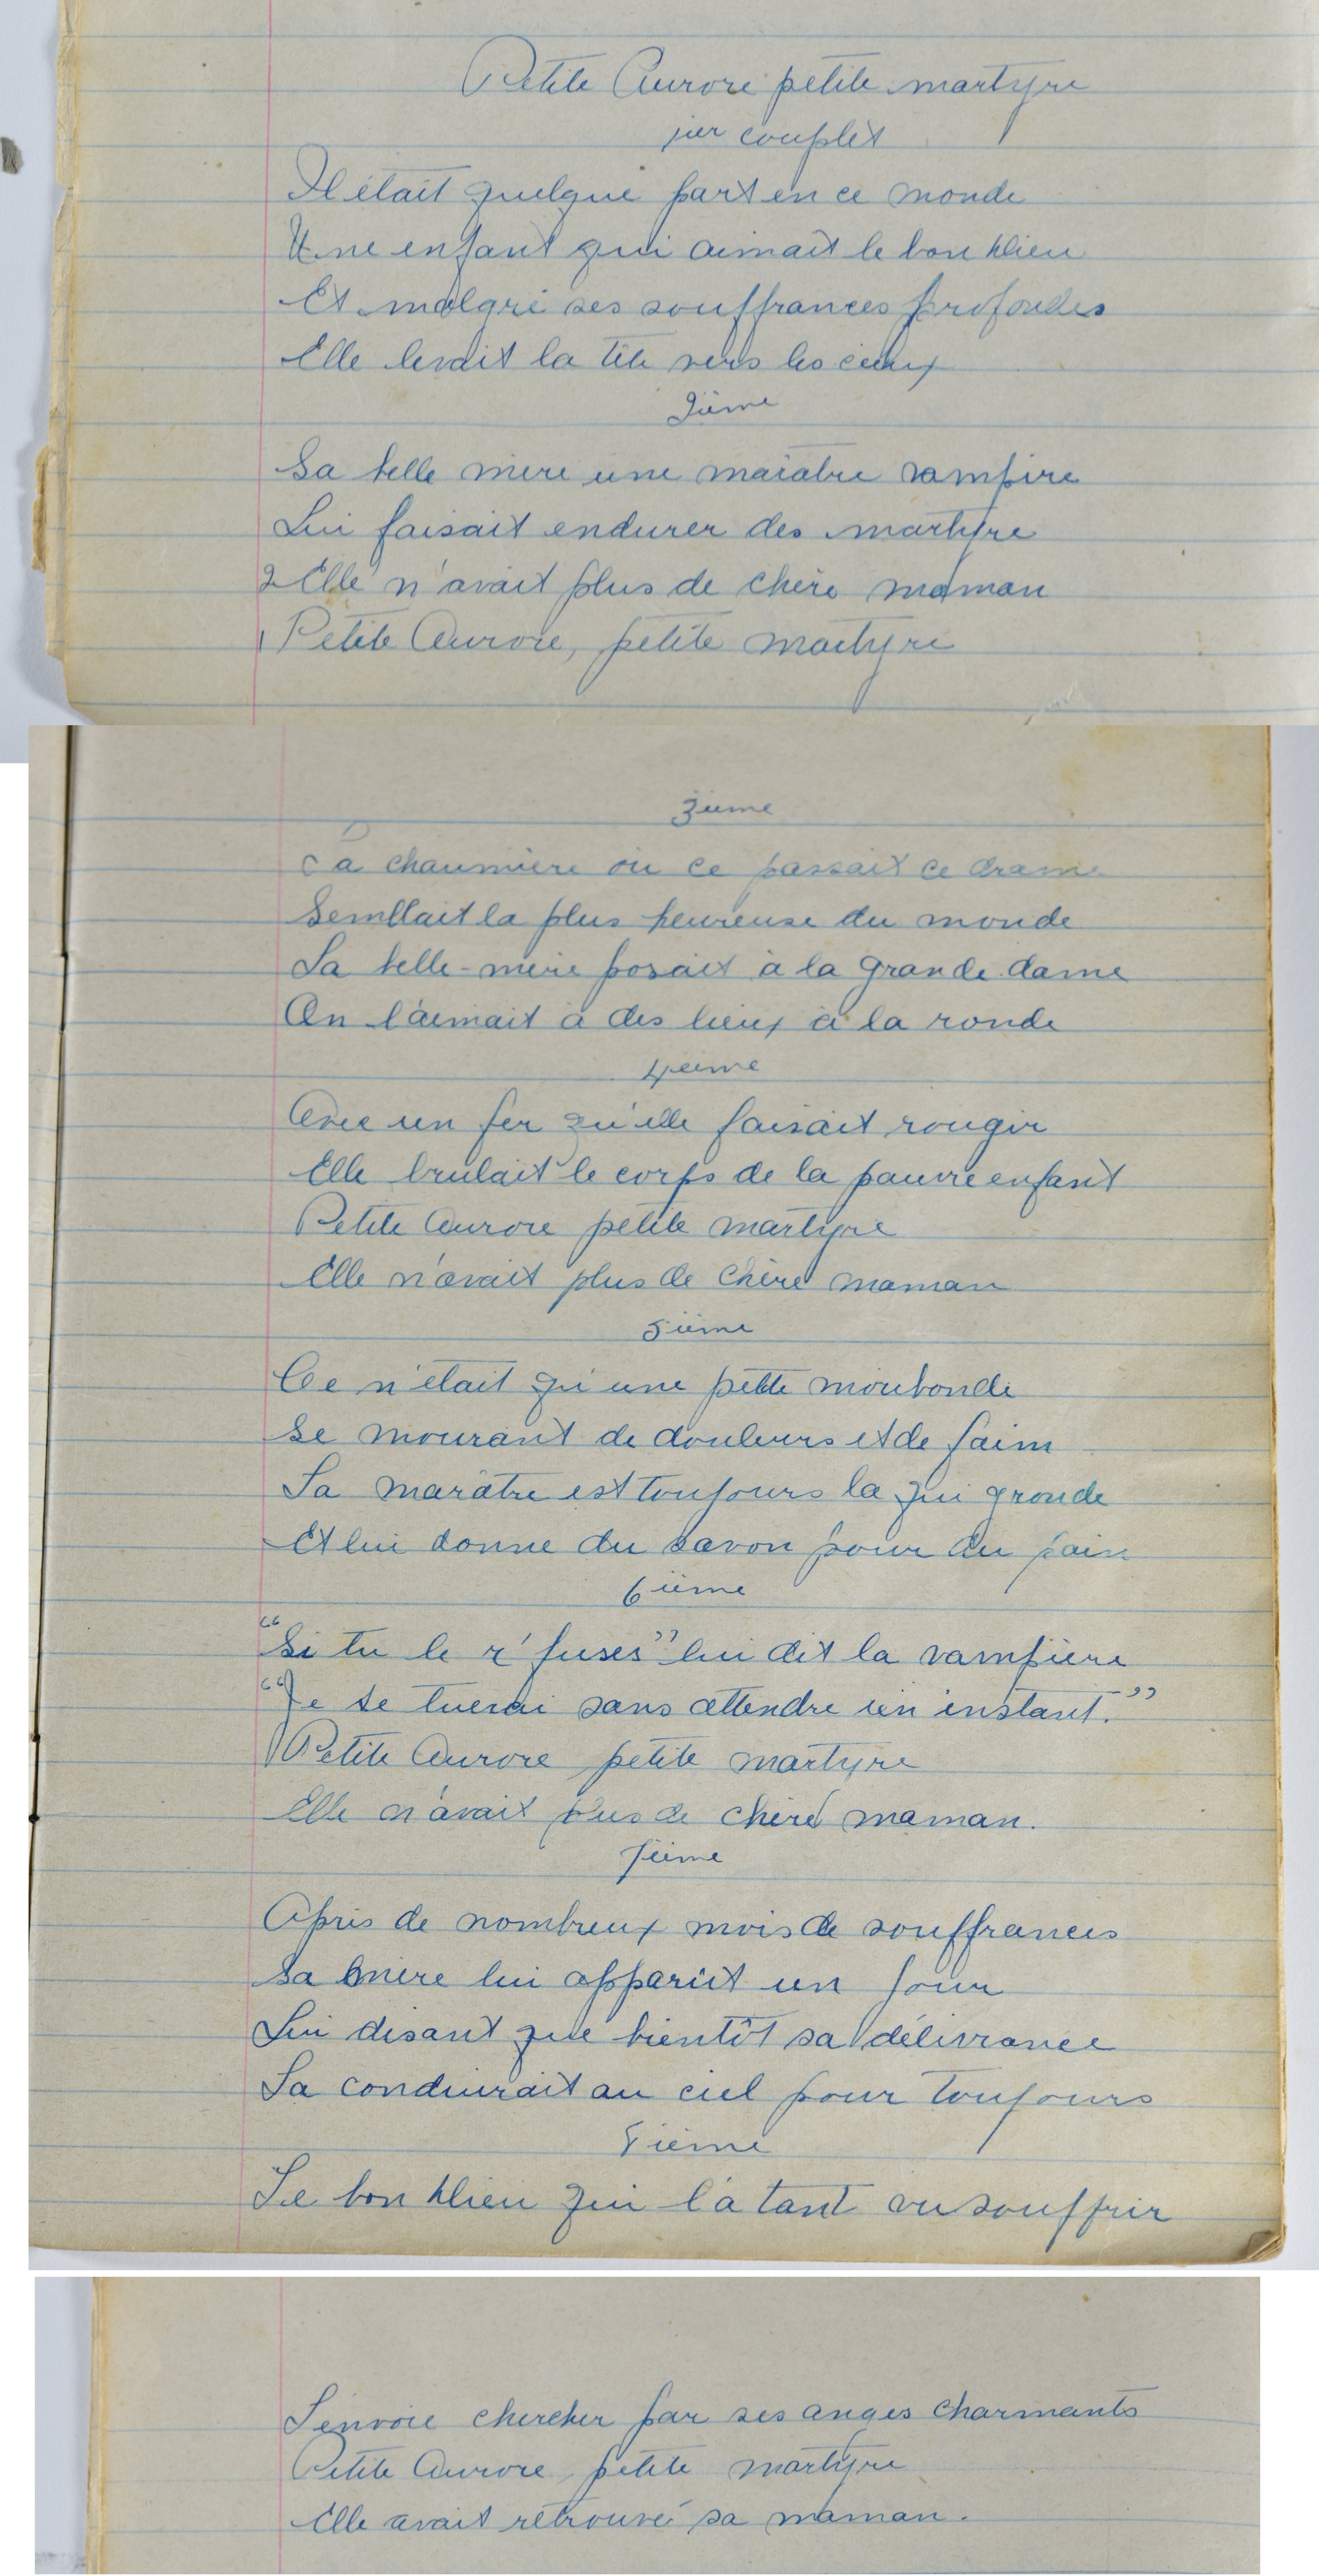 Petite Aurore petite martyre
1ier couplet
Il était quelque part en ce monde
Une enfant qui aimait le bon Dieu
Et malgré ses souffrances profondes
Elle levait la tête vers les cieux
2ième
Sa belle mère une maratre vampire
Lui faisait endurer des martyre
2 Elle n'avait plus de chère maman
1 Petite Aurore, petite martyre
3ième
La chaumière où ce passait ce drame
Semblait la plus heureuse du monde
La belle-mère posait à la grande dame
On l'aimait à des lieux à la ronde
4ième
Avec un fer qu'elle faisait rougir
Elle brulait le corps de la pauvre enfant
Petite Aurore petite martyre
Elle n'avait plus de chère maman
5ième
Ce n'était qu'une petite moribonde
Se mourant de douleurs et de faim
La marâtre est toujours la qui gronde
Et lui donne du savon pour du pain
6ième
"Si tu le r'fuses" lui dit la vampière
"Je te tuerai sans attendre un instant."
Petite Aurore petite martyre
Elle n'avait plus de chère maman.
7ième
Après de nombreux mois de souffrances
Sa mère lui apparut un jour
Lui disant que bientôt sa délivrance
La conduirait au ciel pour toujours
8ième
Le bon Dieu qui l'a tant vu souffrir
L'envoie chercher par ses anges charmants
Petite Aurore petite martyre
Elle avait retrouvé sa maman.